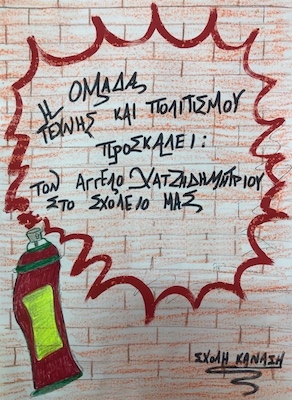 Η ΟΜΑΔΑ
ΤΕΧΝΗΣ ΚΑΙ ΠΟΛΙΤΙΣΜΟΥ
ΠΡΟΣΚΑΛΕΙ:
ΤΟΝ ΑΓΓΕΛΟ ΧΑΤΖΗΔΗΜΗΤΡΙΟΥ
ΣΤΟ ΣΧΟΛΕΙΟ ΜΑΣ
ΣΧΟΛΗ ΚΑΝΑΣΗ